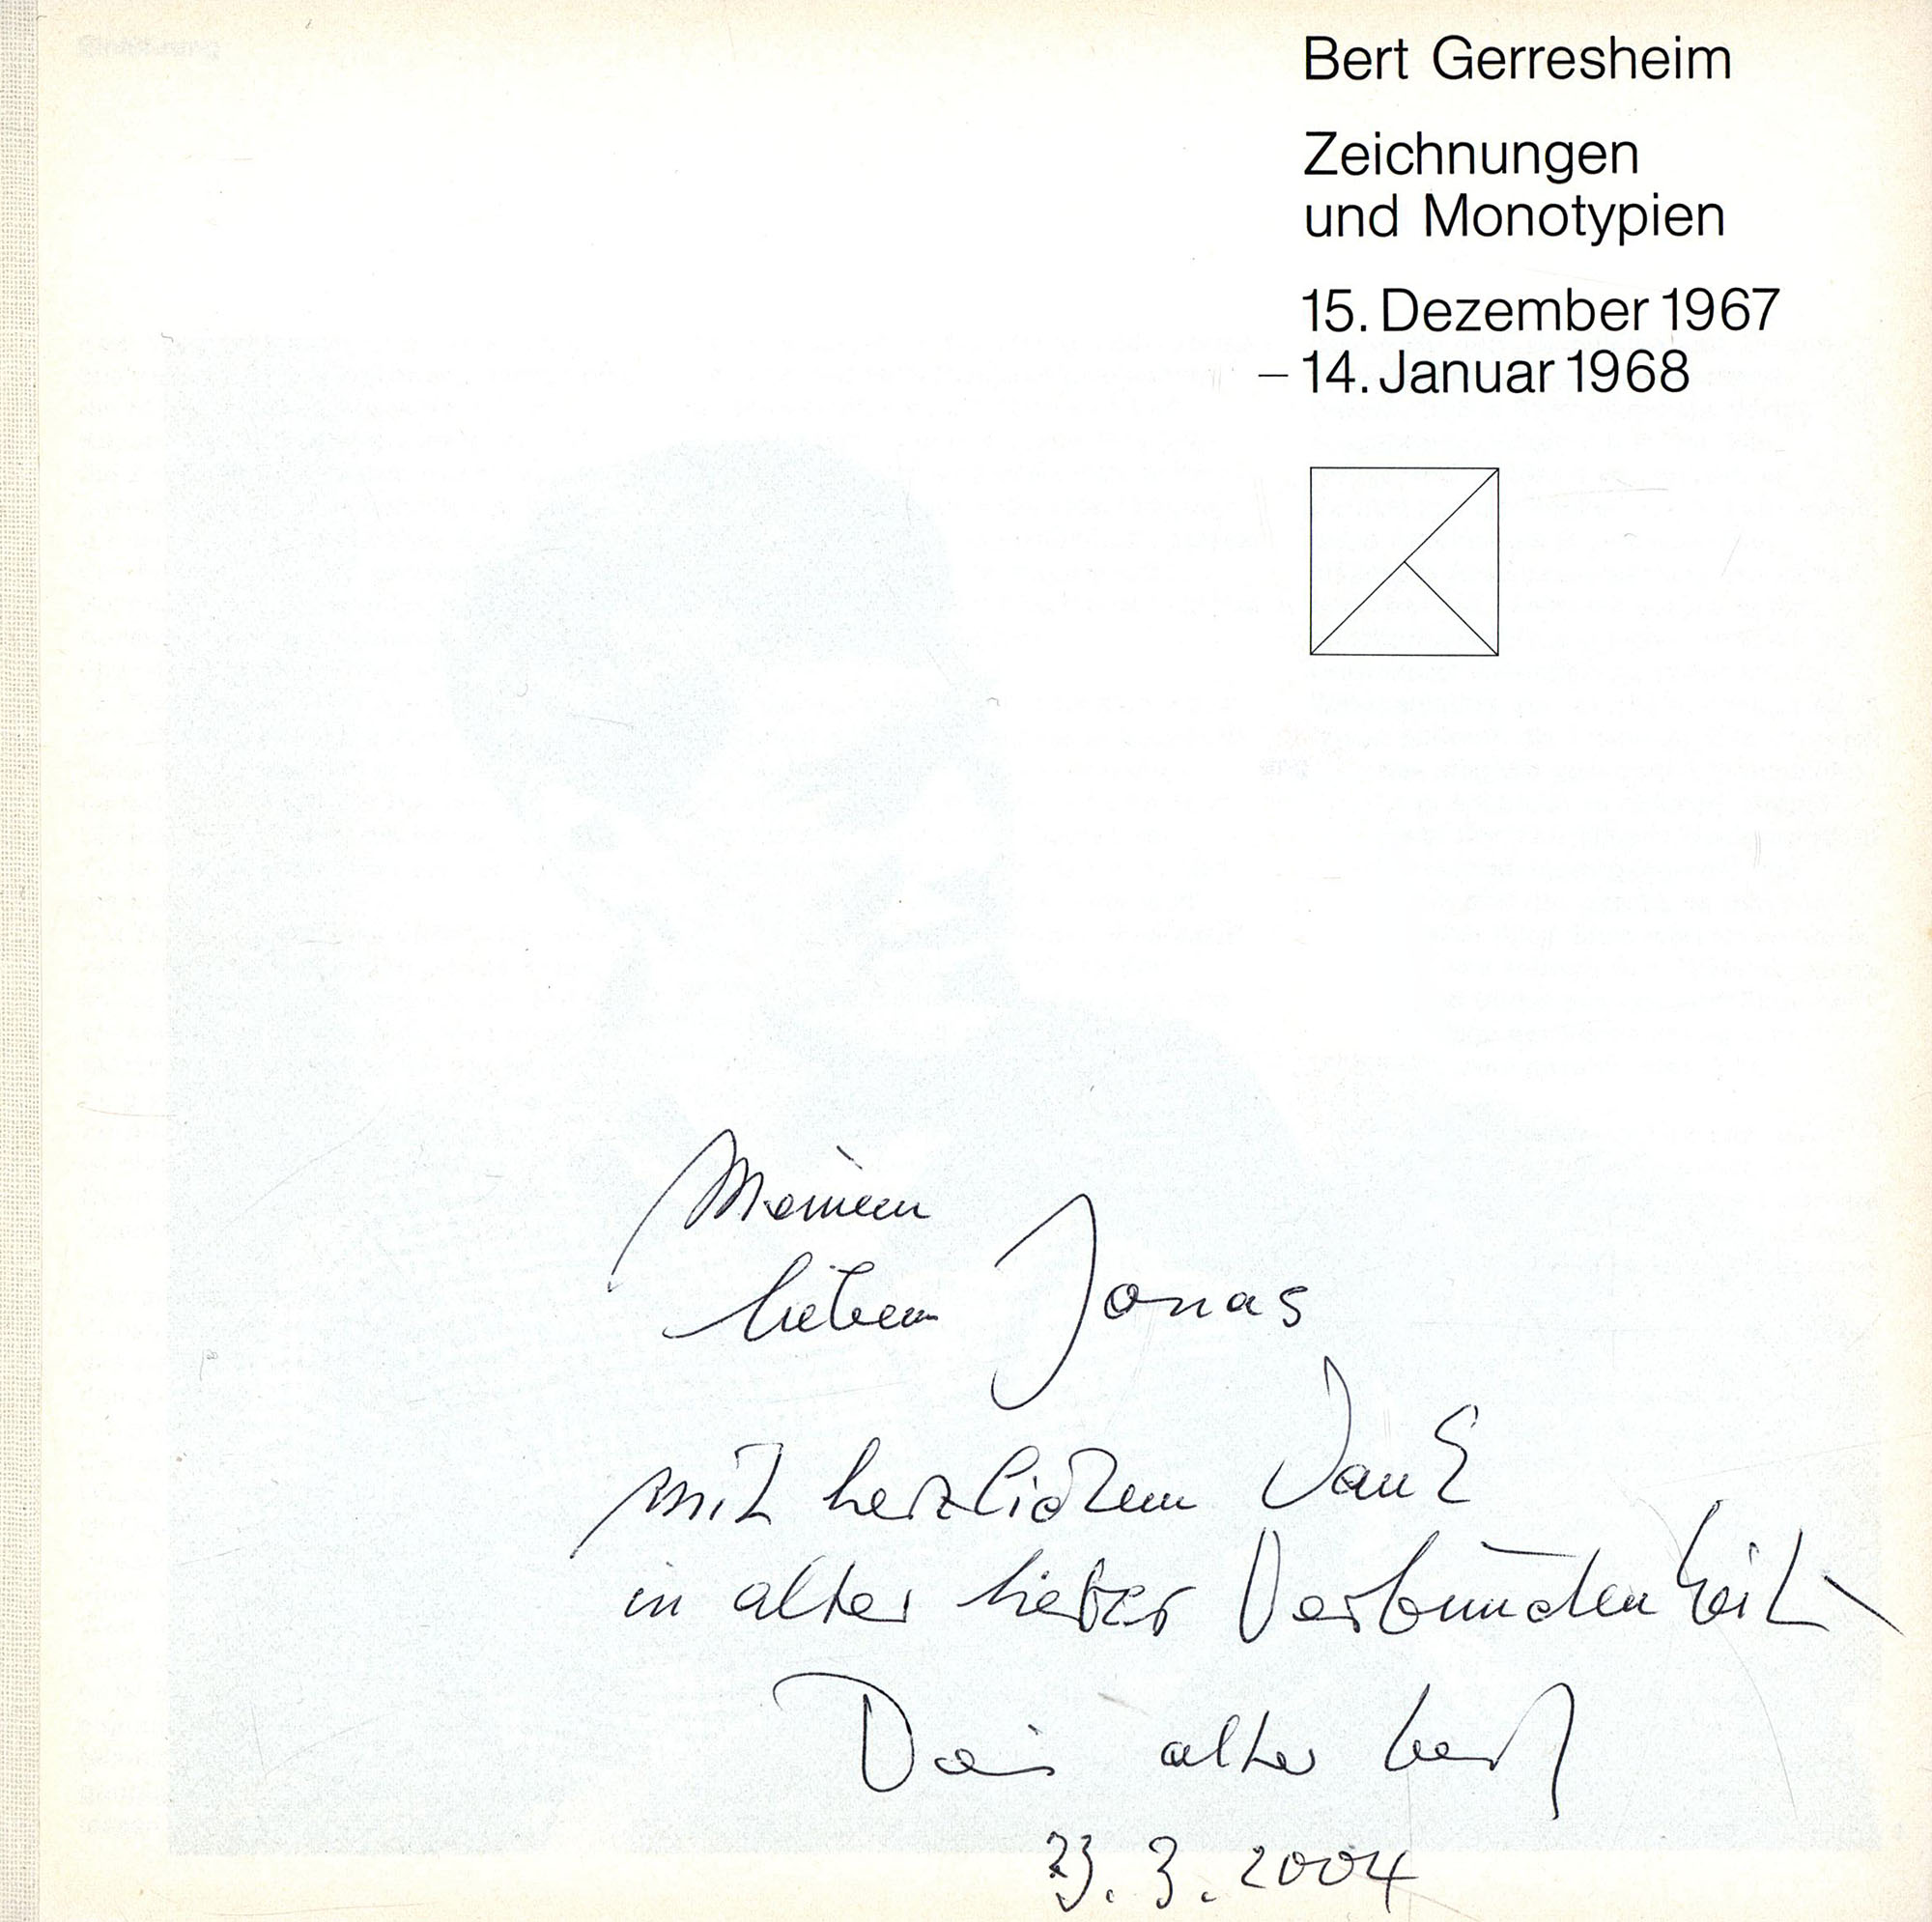 Bert Gerresheim
Zeichnungen
und Monotypien
15. Dezember 1967
– 14. Januar 1968
Meinem
lieben Jonas
mit herzlichem Dank
in alter lieber Verbundenheit
Dein alter bert
23.3.2004